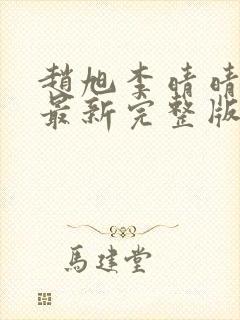 趙旭李晴晴
最新完整版
馬建堂